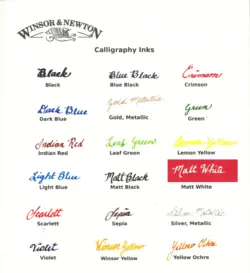 WINSOR & NEWTON
Calligraphy Inks
Black Blue Black Crimson
Black Blue Black Crimson
Dark Blue Gold Metallic Green
Dark Blue Gold, Metallic Green
Indian Red Leaf Green Lemon Yellow
Indian Red Leaf Green Lemon Yellow
Light Blue Matt Black Matt White
Light Blue Matt Black Matt White
Scarlett Sepia Silver Metallic
Scarlett Sepia Silver, Metallic
Violet Winsor Yellow Yellow Ochre
Violet Winsor Yellow Yellow Ochre